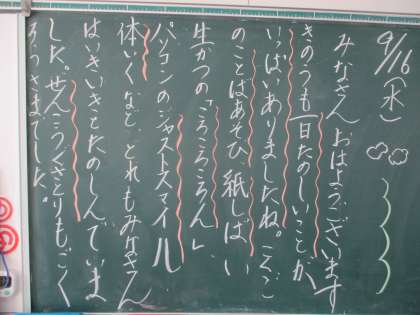 9/16(水)
みなさん おはようございます
きのうも一日たのしいことが
いっぱいありましたね。こくご
のことばあそび、紙しばい
生かつの「ころころころん」
パソコンのジャストスマイル
体いくなど、どれもみなさん
はいきいきとたのしんでいま
した。ぜんこうくさとりもごく
ろうさまでした。